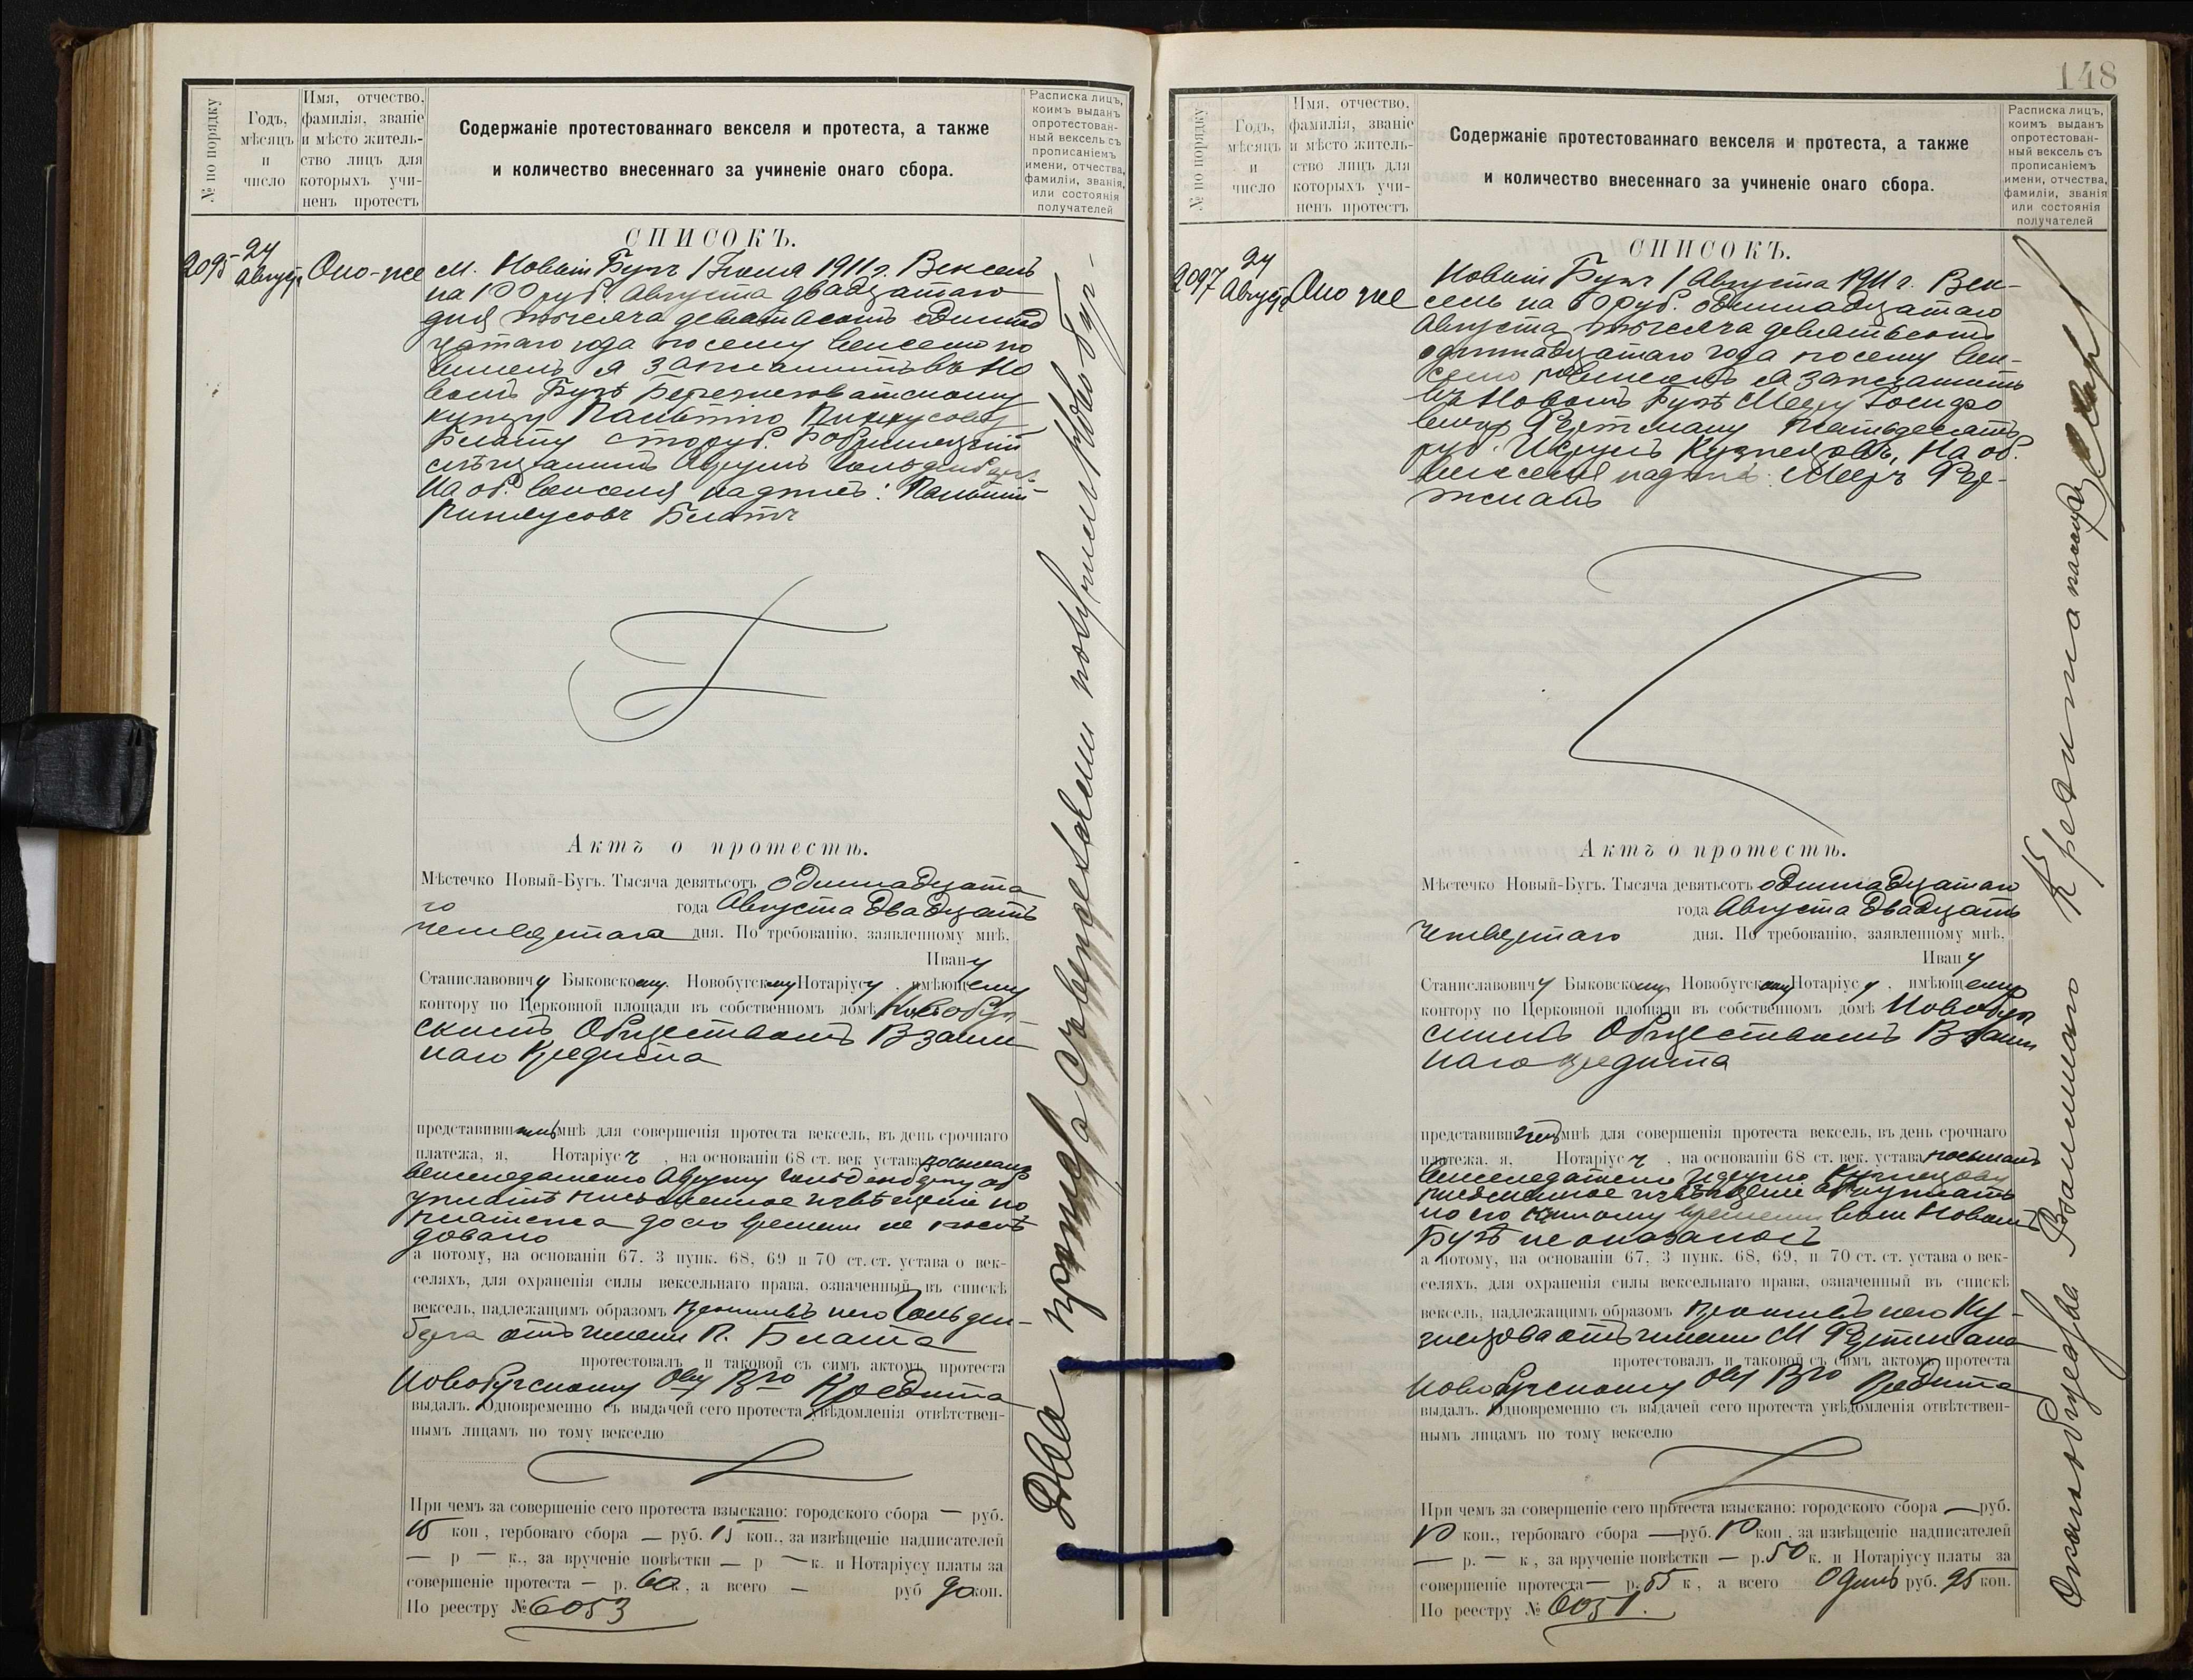 № по порядку
Годъ, мѣсяцъ и число
Имя, отчество, фамилія, званіе и мѣсто жительство лицъ для которыхъ учиненъ протестъ
Содержаніе протестованнаго векселя и протеста, а также
и количество внесеннаго за учиненіе онаго сбора.
Расписка лицъ, коимъ выданъ опротестованный вексель съ прописаніемъ имени, отчества, фамиліи, званія, или состоянія получателей
СПИСОКЪ.
2095
24
Август
Оно-же
м. Новый Бугъ 1 1911 г. Вексель
на 100 руб. Августа двадцатаго
дня тысяча девятьсотъ одиннад
цатаго года по сему векселю по
виненъ я заплатить въ Но
вомъ Бугѣ
купцу
Блату сто руб.
Аврумъ
На об. векселя надпись:
Блатъ
Актъ о протестѣ.
Мѣстечко Новый-Бугъ. Тысяча девятьсотъ одиннадцата
го года Августа двадцать
четвертаго дня. По требованію, заявленному мнѣ,
Ивану
Станиславовичу Быковскому, Новобугскому Нотаріусу, имѣющему
контору по Церковной площади въ собственномъ домѣ Новобуг
скимъ Обществомъ Взаим
наго Кредита
представившимъ мнѣ для совершенія протеста вексель, въ день срочнаго
платежа, я, Нотаріусъ, на основаніи 68 ст. век устава послалъ
векселедателю Авруму об
уплатѣ письменное извѣщеніе но
платежа до сего времени не послѣ
довало
а потому, на основаніи 67. 3 пунк. 68, 69 и 70 ст. ст. устава о век-
селяхъ, для охраненія силы вексельнаго права, означенный въ спискѣ
вексель, надлежащимъ образомъ противъ него Гольден-
берга отъ имени П. Блата
протестовалъ и таковой съ симъ актомъ протеста
Новобугскому Ову Вго Кредита
выдалъ. Одновременно съ выдачей сего протеста увѣдомленія отвѣтствен-
нымъ лицамъ по тому векселю
При чемъ за совершеніе сего протеста взыскано: городского сбора — руб.
15 коп, гербоваго сбора — руб. 15 коп., за извѣщеніе надписателей
— р — к., за врученіе повѣстки — р — к. и Нотаріусу платы за
совершеніе протеста — р. 60 к., а всего — руб 90 коп.
По реестру № 6053
Два протеста съ векселями получилъ Новобуг-
148
№ по порядку
Годъ, мѣсяцъ и число
Имя, отчество, фамилія, званіе и мѣсто жительство лицъ для которыхъ учиненъ протестъ
Содержаніе протестованнаго векселя и протеста, а также
и количество внесеннаго за учиненіе онаго сбора.
Расписка лицъ, коимъ выданъ опротестованный вексель съ прописаніемъ имени, отчества, фамиліи, званія или состоянія получателей
СПИСОКЪ.
2097
24
Август
Оно же
Новый Бугъ 1 Августа 1911 г. Век-
сель на 50 руб. одиннадцатаго
Августа тысяча девятьсотъ
одиннадцатаго года по сему век-
селю повиненъ я заплатить
въ Новомъ Бугѣ Мееру Іосифо
вичу пятьдесятъ
руб. Кузнецовъ, На об.
векселя надпись: Мееръ
Актъ о протестѣ.
Мѣстечко Новый-Бугъ. Тысяча девятьсотъ одиннадцатаго
года Августа двадцать
четвертаго дня. По требованію, заявленному мнѣ,
Ивану
Станиславовичу Быковскому, Новобугскому Нотаріусу, имѣющему
контору по Церковной площади въ собственномъ домѣ Новобуг
скимъ Обществомъ Взаим
наго кредита
представившимъ мнѣ для совершенія протеста вексель, въ день срочнаго
платежа, я, Нотаріусъ, на основаніи 68 ст. век. устава послалъ
векселедателю Кузнецову
письменное извѣщеніе
но его времени въ м Новомъ
Бугѣ не оказалось
а потому, на основаніи 67, 3 пунк. 68, 69, и 70 ст. ст. устава о век-
селяхъ, для охраненія силы вексельнаго права, означенный въ спискѣ
вексель, надлежащимъ образомъ противъ него Ку-
знецова отъ имени М
протестовалъ и таковой съ симъ актомъ протеста
Новобугскому Ову Вго Кредита
выдалъ. Одновременно съ выдачей сего протеста увѣдомленія отвѣтствен-
нымъ лицамъ по тому векселю
При чемъ за совершеніе сего протеста взыскано: городского сбора — руб.
10 коп., гербоваго сбора — руб. 10 коп, за извѣщеніе надписателей
— р. — к, за врученіе повѣстки — р. 50 к. и Нотаріусу платы за
совершеніе протеста — р. 55 к, а всего Одинъ руб. 25 коп.
По реестру № 6051.
Взаимнаго Кредита